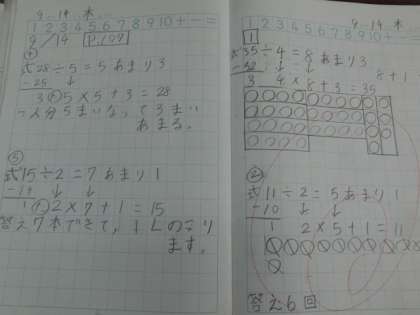 9-14 木
1 2 3 4 5 6 7 8 9 10 + - =
9/14 P.199
④
式28÷5=5あまり3
-25 ↓ ↓
3 5×5+3=28
一人分5まいなって3まい
あまる。
⑤
式15÷2=7あまり1
-14 ↓ ↓
1 2×7+1=15
答え7本できて,1Lのこり
ます。
9-14 木
1 2 3 4 5 6 7 8 9 10 + - =
1
式35÷4=8あまり3
-32 ↓ ↓
3 4×8+3=35
8+1
②
式11÷2=5あまり1
-10 ↓ ↓
1 2×5+1=11
答え6回